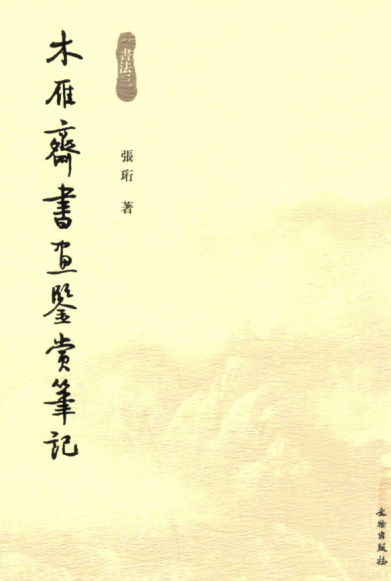 木雁齋書畫鑒賞筆記
書法三
張珩 著
文物出版社